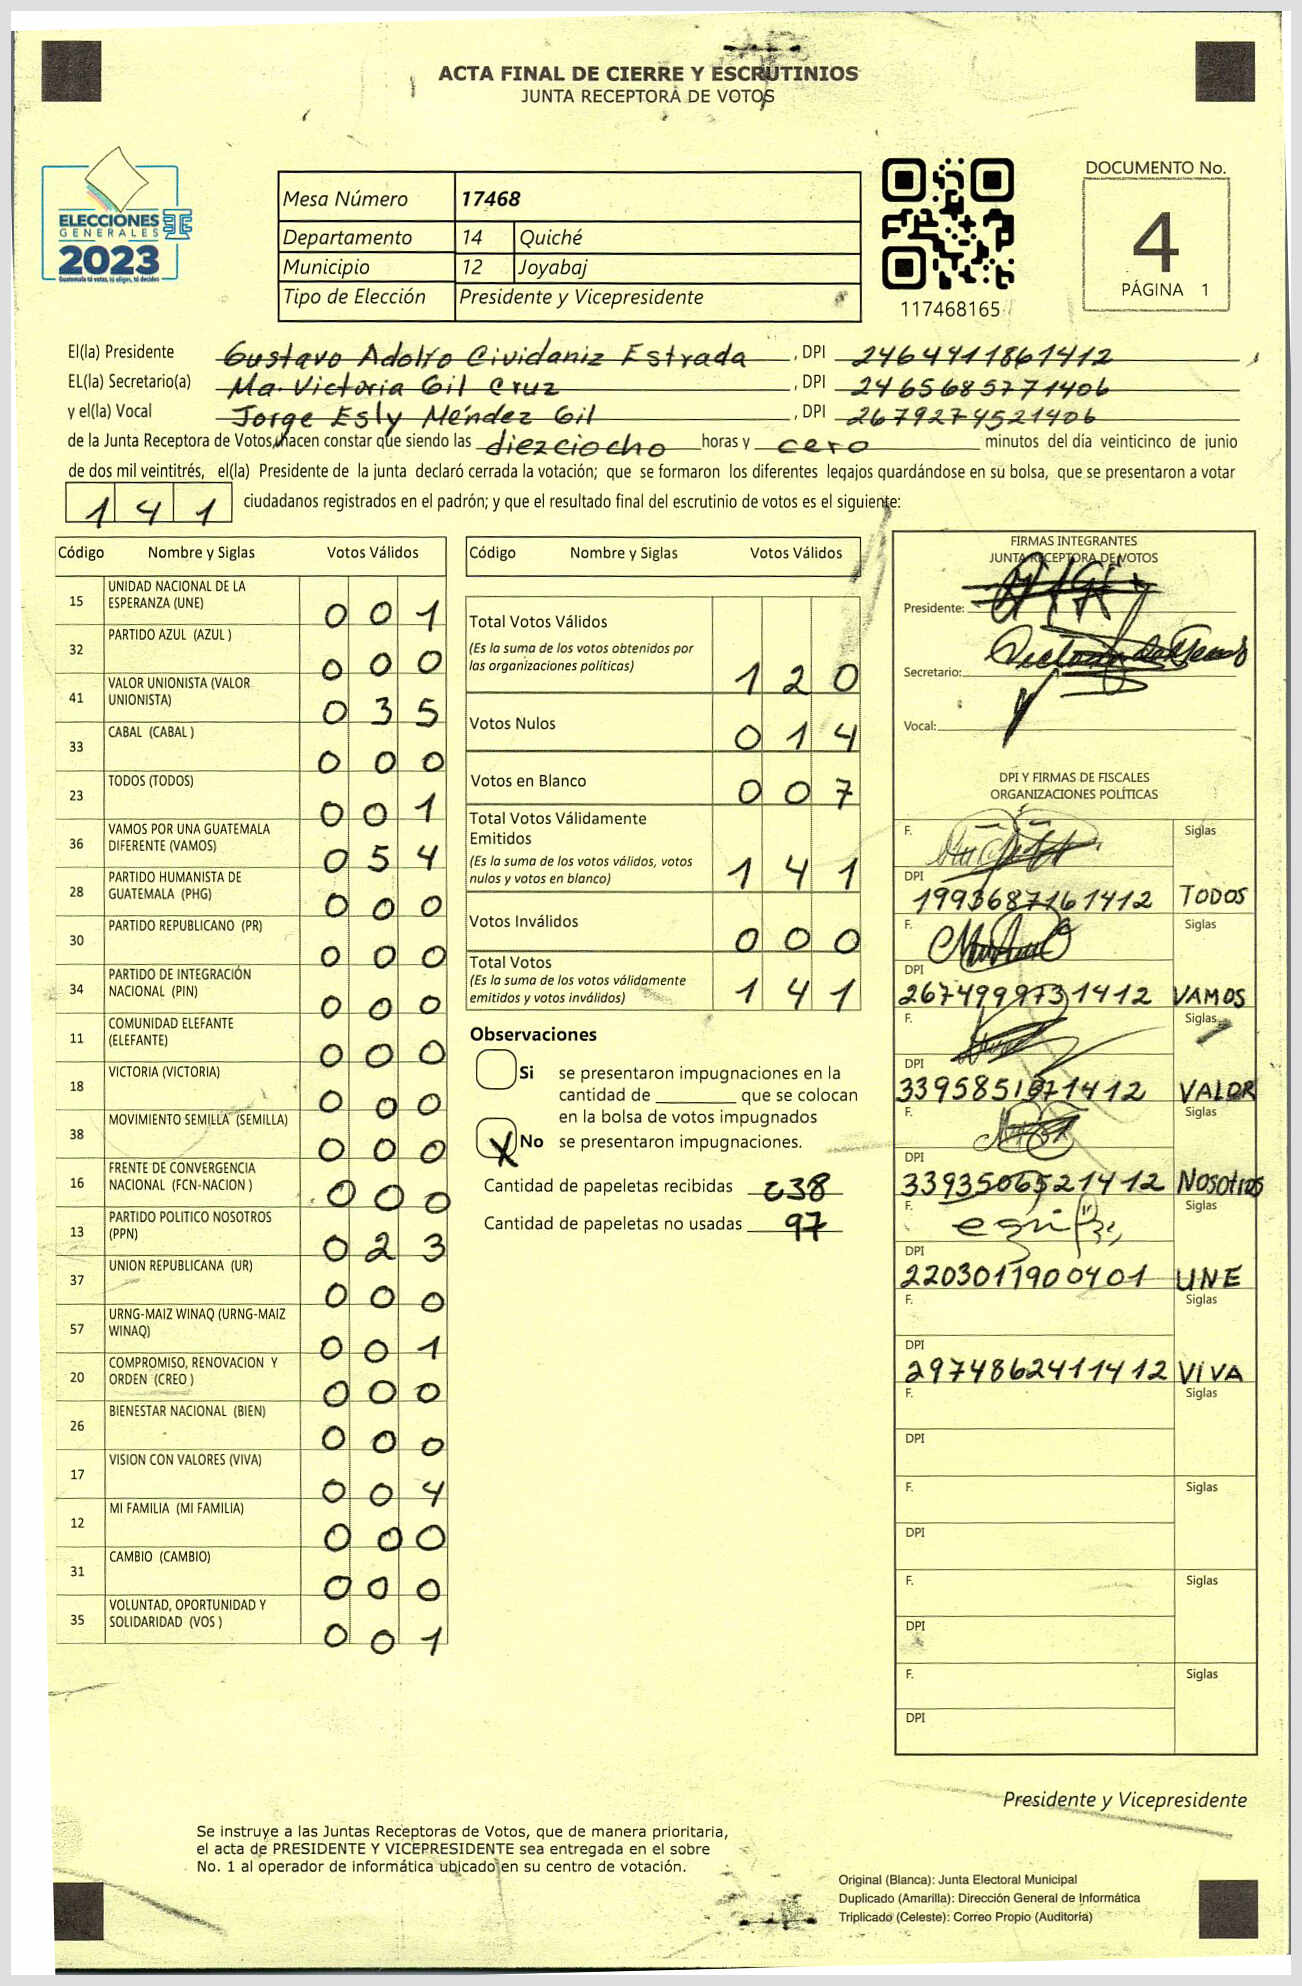 ACTA FINAL DE CIERRE Y ESCRUTINIOS
JUNTA RECEPTORA DE VOTOS
ELECCIONES
GENERALES
2023
Guatemala tú votas, tú eliges, tú decides
Mesa Número 17468
Departamento 14 Quiché
Municipio 12 Joyabaj
Tipo de Elección Presidente y Vicepresidente
117468165
DOCUMENTO No.
4
PÁGINA 1
El(la) Presidente Gustavo Adolfo Cividaniz Estrada , DPI 2464411861412
EL(la) Secretario(a) Ma. Victoria Gil Cruz , DPI 2465685771406
y el(la) Vocal Jorge Esly Méndez Gil , DPI 2679274521406
de la Junta Receptora de Votos, hacen constar que siendo las diezciocho horas y cero minutos del día veinticinco de junio
de dos mil veintitrés, el(la) Presidente de la junta declaró cerrada la votación; que se formaron los diferentes legajos quardándose en su bolsa, que se presentaron a votar
141 ciudadanos registrados en el padrón; y que el resultado final del escrutinio de votos es el siguiente:
Código Nombre y Siglas Votos Válidos
15 UNIDAD NACIONAL DE LA ESPERANZA (UNE) 001
32 PARTIDO AZUL (AZUL ) 000
41 VALOR UNIONISTA (VALOR UNIONISTA) 035
33 CABAL (CABAL ) 000
23 TODOS (TODOS) 001
36 VAMOS POR UNA GUATEMALA DIFERENTE (VAMOS) 054
28 PARTIDO HUMANISTA DE GUATEMALA (PHG) 000
30 PARTIDO REPUBLICANO (PR) 000
34 PARTIDO DE INTEGRACIÓN NACIONAL (PIN) 000
11 COMUNIDAD ELEFANTE (ELEFANTE) 000
18 VICTORIA (VICTORIA) 000
38 MOVIMIENTO SEMILLA (SEMILLA) 000
16 FRENTE DE CONVERGENCIA NACIONAL (FCN-NACION ) 000
13 PARTIDO POLITICO NOSOTROS (PPN) 023
37 UNION REPUBLICANA (UR) 000
57 URNG-MAIZ WINAQ (URNG-MAIZ WINAQ) 001
20 COMPROMISO, RENOVACION Y ORDEN (CREO ) 000
26 BIENESTAR NACIONAL (BIEN) 000
17 VISION CON VALORES (VIVA) 004
12 MI FAMILIA (MI FAMILIA) 000
31 CAMBIO (CAMBIO) 000
35 VOLUNTAD, OPORTUNIDAD Y SOLIDARIDAD (VOS ) 001
Código Nombre y Siglas Votos Válidos
Total Votos Válidos
(Es la suma de los votos obtenidos por
las organizaciones políticas) 120
Votos Nulos 014
Votos en Blanco 007
Total Votos Válidamente
Emitidos
(Es la suma de los votos válidos, votos
nulos y votos en blanco) 141
Votos Inválidos 000
Total Votos
(Es la suma de los votos válidamente
emitidos y votos inválidos) 141
Observaciones
Si se presentaron impugnaciones en la
cantidad de ________ que se colocan
en la bolsa de votos impugnados
X No se presentaron impugnaciones.
Cantidad de papeletas recibidas 238
Cantidad de papeletas no usadas 97
FIRMAS INTEGRANTES
JUNTA RECEPTORA DE VOTOS
Presidente:
Secretario:
Vocal:
DPI Y FIRMAS DE FISCALES
ORGANIZACIONES POLÍTICAS
F. Siglas
DPI 1993687161412 TODOS
F. Siglas
DPI 2674999731412 VAMOS
F. Siglas
DPI 3395851071412 VALOR
F. Siglas
DPI 3393506521412 Nosotros
F. Siglas
DPI 2203011900401 UNE
F. Siglas
DPI 2974862411412 VIVA
F. Siglas
DPI
F. Siglas
DPI
F. Siglas
DPI
F. Siglas
DPI
Presidente y Vicepresidente
Se instruye a las Juntas Receptoras de Votos, que de manera prioritaria,
el acta de PRESIDENTE Y VICEPRESIDENTE sea entregada en el sobre
No. 1 al operador de informática ubicado en su centro de votación.
Original (Blanca): Junta Electoral Municipal
Duplicado (Amarilla): Dirección General de Informática
Triplicado (Celeste): Correo Propio (Auditoría)